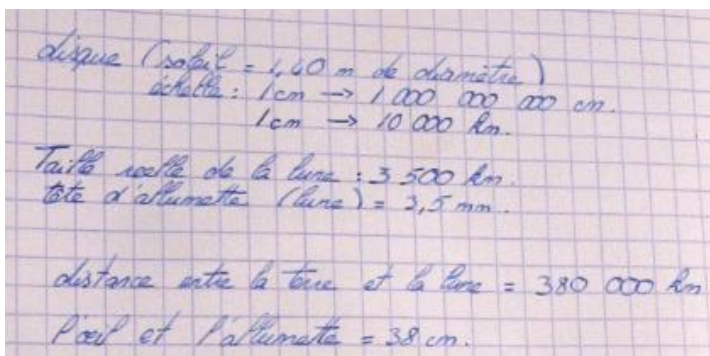 disque (soleil = 1,40 m de diamètre)
échelle : 1cm → 1 000 000 000 cm.
1cm → 10 000 km.
Taille réelle de la lune : 3 500 km.
tête d'allumette (lune) = 3,5 mm.
distance entre la terre et la lune = 380 000 km
l'œil et l'allumette = 38 cm.